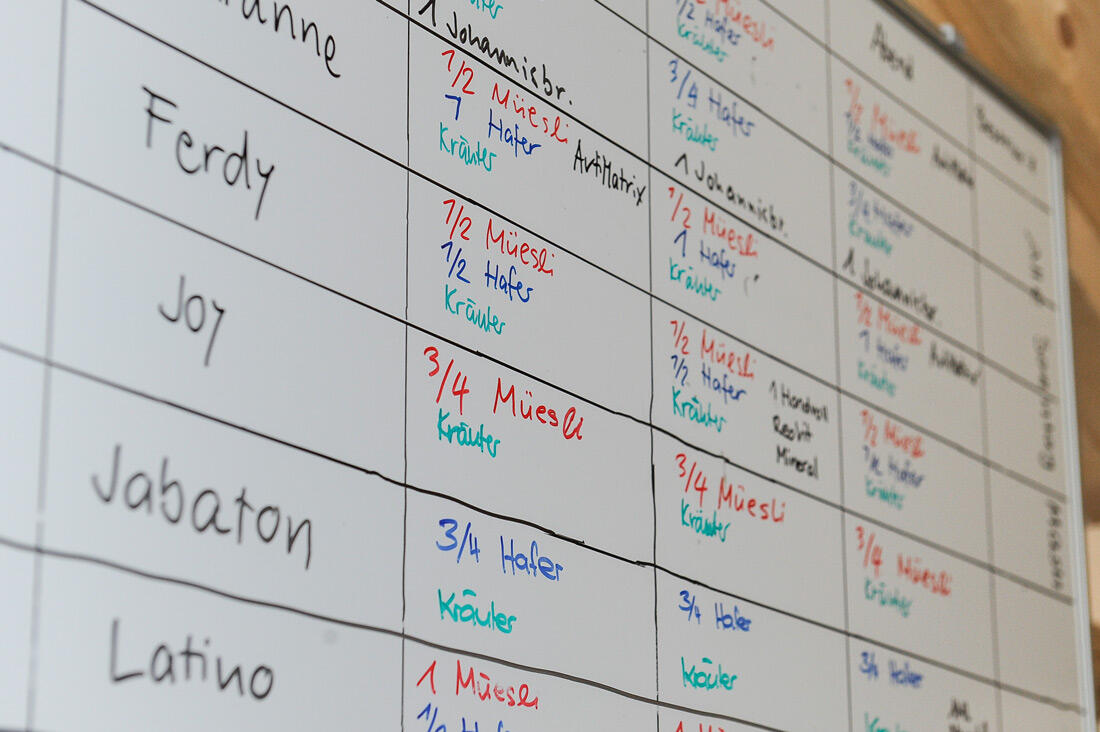 Abend
Müesli
1/2 Hafer
Kräuter
1/2 Müesli
1/2 Hafer
Kräuter
Kräuter
1 Johannisbr.
3/4 Hafer
Kräuter
1 Johannisbr.
3/4 Hafer
Kräuter
1 Johannisbr.
Ferdy
1/2 Müesli
1 Hafer
Kräuter
ArtiMatrix
1/2 Müesli
1 Hafer
Kräuter
1/2 Müesli
1 Hafer
Kräuter
Joy
1/2 Müesli
1/2 Hafer
Kräuter
1/2 Müesli
1/2 Hafer
Kräuter
1 Handvoll
Mineral
1/2 Müesli
1/2 Hafer
Kräuter
Jabaton
3/4 Müesli
Kräuter
3/4 Müesli
Kräuter
3/4 Müesli
Kräuter
Latino
3/4 Hafer
Kräuter
3/4 Hafer
Kräuter
3/4 Hafer
1 Müesli
1/2 Hafer